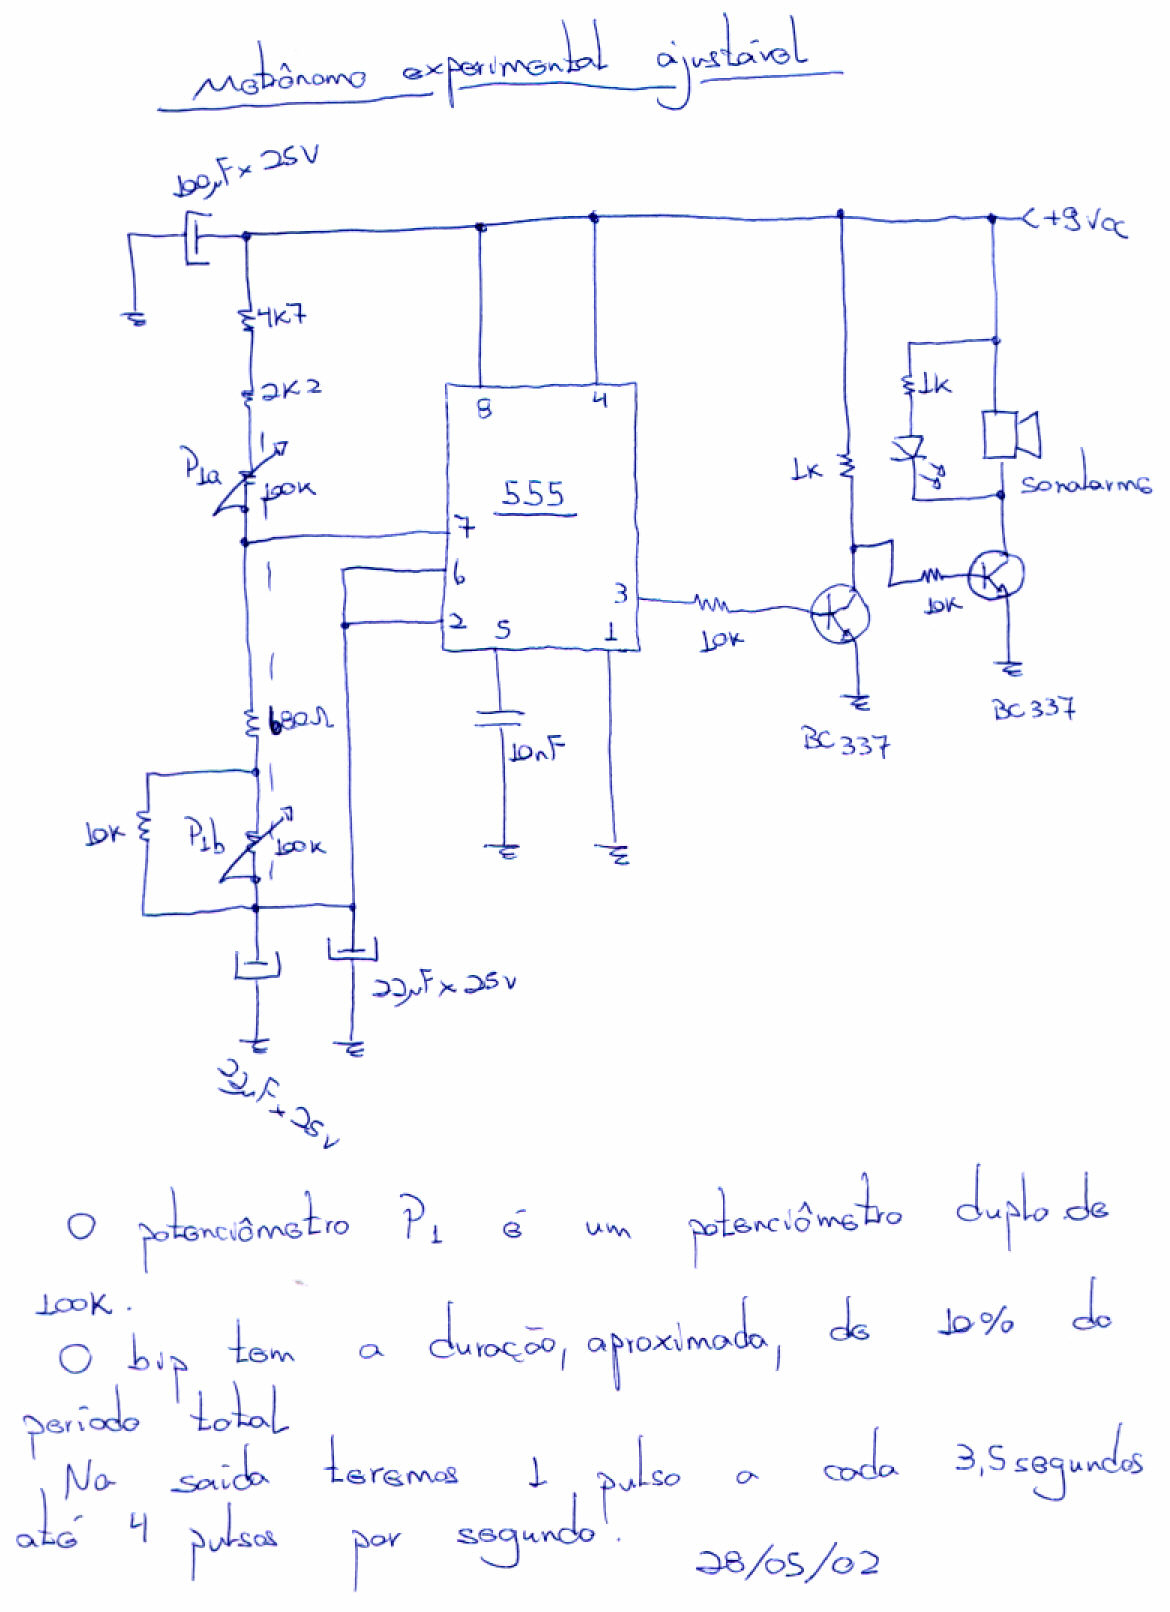 Metrônomo experimental ajustável
100µF x 25V
+9Vcc
4K7
2K2
1K
P1a
100K
8
4
555
1K
sonalarme
7
6
3
2
5
1
10K
10K
680Ω
10nF
BC337
BC337
10K
P1b
100K
22µF x 25V
22µF x 25V
O potenciômetro P1 é um potenciômetro duplo de
100K.
O bip tem a duração, aproximada, de 10% do
período total
Na saída teremos 1 pulso a cada 3,5 segundos
até 4 pulsos por segundo.
28/05/02